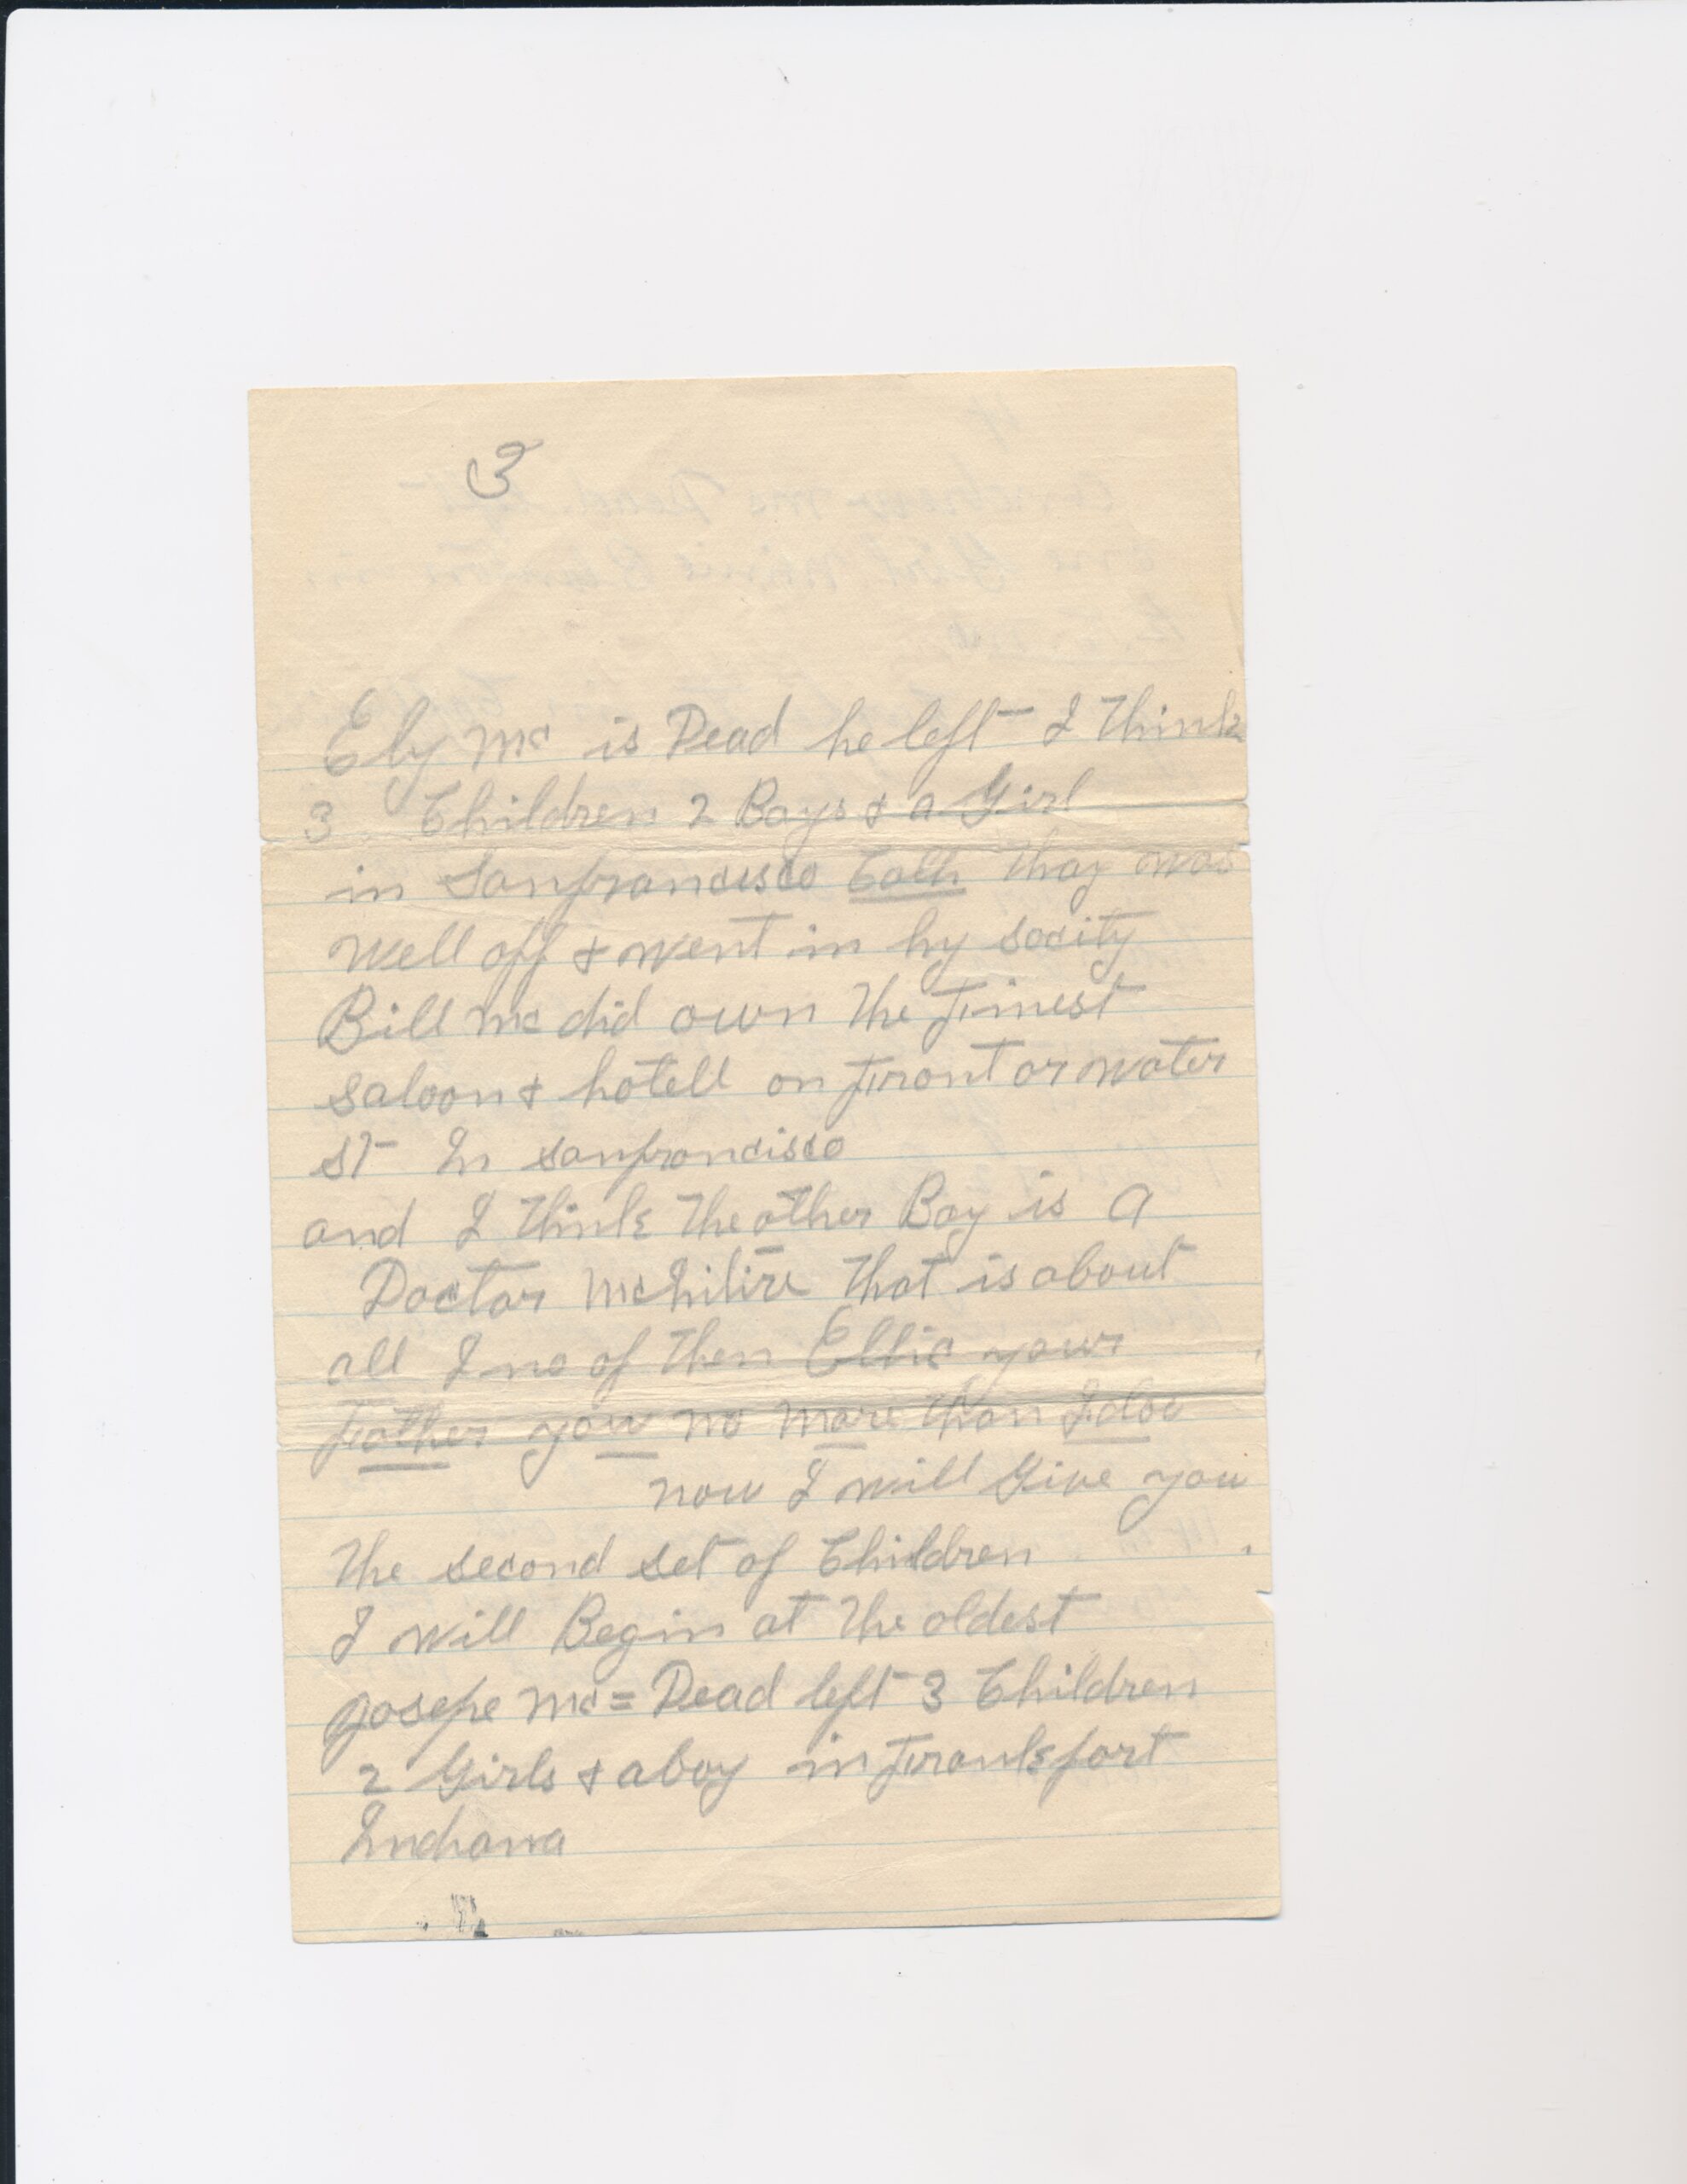 3
Ely Mc is Dead he left I think
3 Children 2 Boys & a Girl
in Sanfrancisco Calh thay was
well off & went in hy socity
Bill Mc did own the finest
saloon & hotell on front or water
st In sanfrancisco
and I think the other Boy is a
Doctor that is about
all I no of then Ellic your
father you no more than I doe
now I will Give you
the second set of Children
I will Begin at the oldest
Josepe Mc = Dead left 3 Children
2 Girls & a boy in frankfort
Indiana